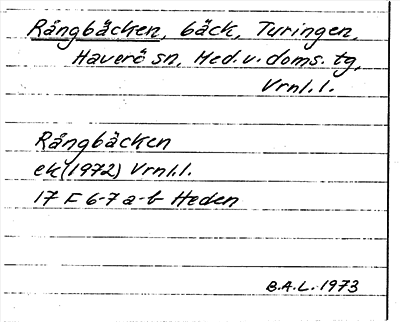 Rångbäcken, bäck, Turingen,
Haverö sn, Med. v. doms. tg,
Vrnl. l.
Rångbäcken
ek (1972) Vrnl. l.
17 F 6-7 a-b Heden
B.A.L. 1973